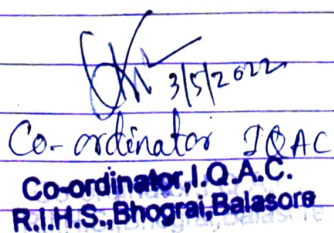 3/5/2022
Co-ordinator IQAC
Co-ordinator,I.Q.A.C.
R.I.H.S.,Bhograi,Balasore